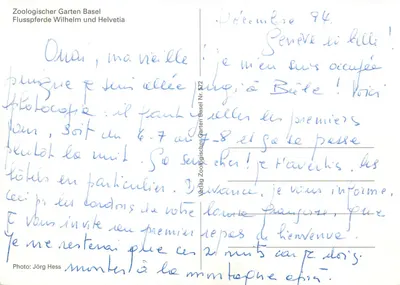 Zoologischer Garten Basel
Flusspferde Wilhelm und Helvetia
Décembre 94
Genève
Ouai, ma vieille, je m'en suis occupée
puisque je suis allée jusqu'à Bâle! Voici
photocopie: il faut y aller les premiers
jours, soit du 6-7 au 7-8 et ça se passe
plutôt la nuit. Ça sera cher! je t'avertis, les
hôtels en particulier. D'avance, je vous informe,
ceci par en dessous de votre française, que
je vous invite au premier repas de bienvenue.
Je ne resterai que ces 2 nuits car je dois
monter à la montagne après.
Verlag Zoologischer Garten Basel Nr. 522
Photo: Jörg Hess